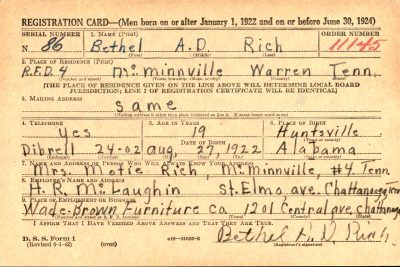 REGISTRATION CARD—(Men born on or after January 1, 1922 and on or before June 30, 1924)
SERIAL NUMBER 1. NAME (Print) ORDER NUMBER
N 86 Bethel A.D. Rich 11145
(First) (Middle) (Last)
2. PLACE OF RESIDENCE (Print)
R.F.D. 4 McMinnville Warren Tenn.
(Number and street) (Town, township, village, or city) (County) (State)
[THE PLACE OF RESIDENCE GIVEN ON THE LINE ABOVE WILL DETERMINE LOCAL BOARD
JURISDICTION; LINE 2 OF REGISTRATION CERTIFICATE WILL BE IDENTICAL]
3. MAILING ADDRESS
Same
[Mailing address if other than place indicated on line 2. If same insert word same]
4. TELEPHONE 5. AGE IN YEARS 6. PLACE OF BIRTH
Yes 19 Huntsville
DATE OF BIRTH (Town or county)
Dibrell 24-02 Aug. 27, 1922 Alabama
(Exchange) (Number) (Mo.) (Day) (Yr.) (State or country)
7. NAME AND ADDRESS OF PERSON WHO WILL ALWAYS KNOW YOUR ADDRESS
Mrs. Matie Rich McMinnville, #4 Tenn
8. EMPLOYER'S NAME AND ADDRESS
H.R. McLaughin St. Elmo ave. Chattanooga Tenn
9. PLACE OF EMPLOYMENT OR BUSINESS
Wade-Brown Furniture co 1201 Central ave Chattanooga
(Number and street or R. F. D. number) (Town) (County) (State)
I AFFIRM THAT I HAVE VERIFIED ABOVE ANSWERS AND THAT THEY ARE TRUE.
D. S. S. Form 1
(Revised 6-1-42) (over) 16—21630-2 Bethel A.D. Rich
(Registrant's signature)